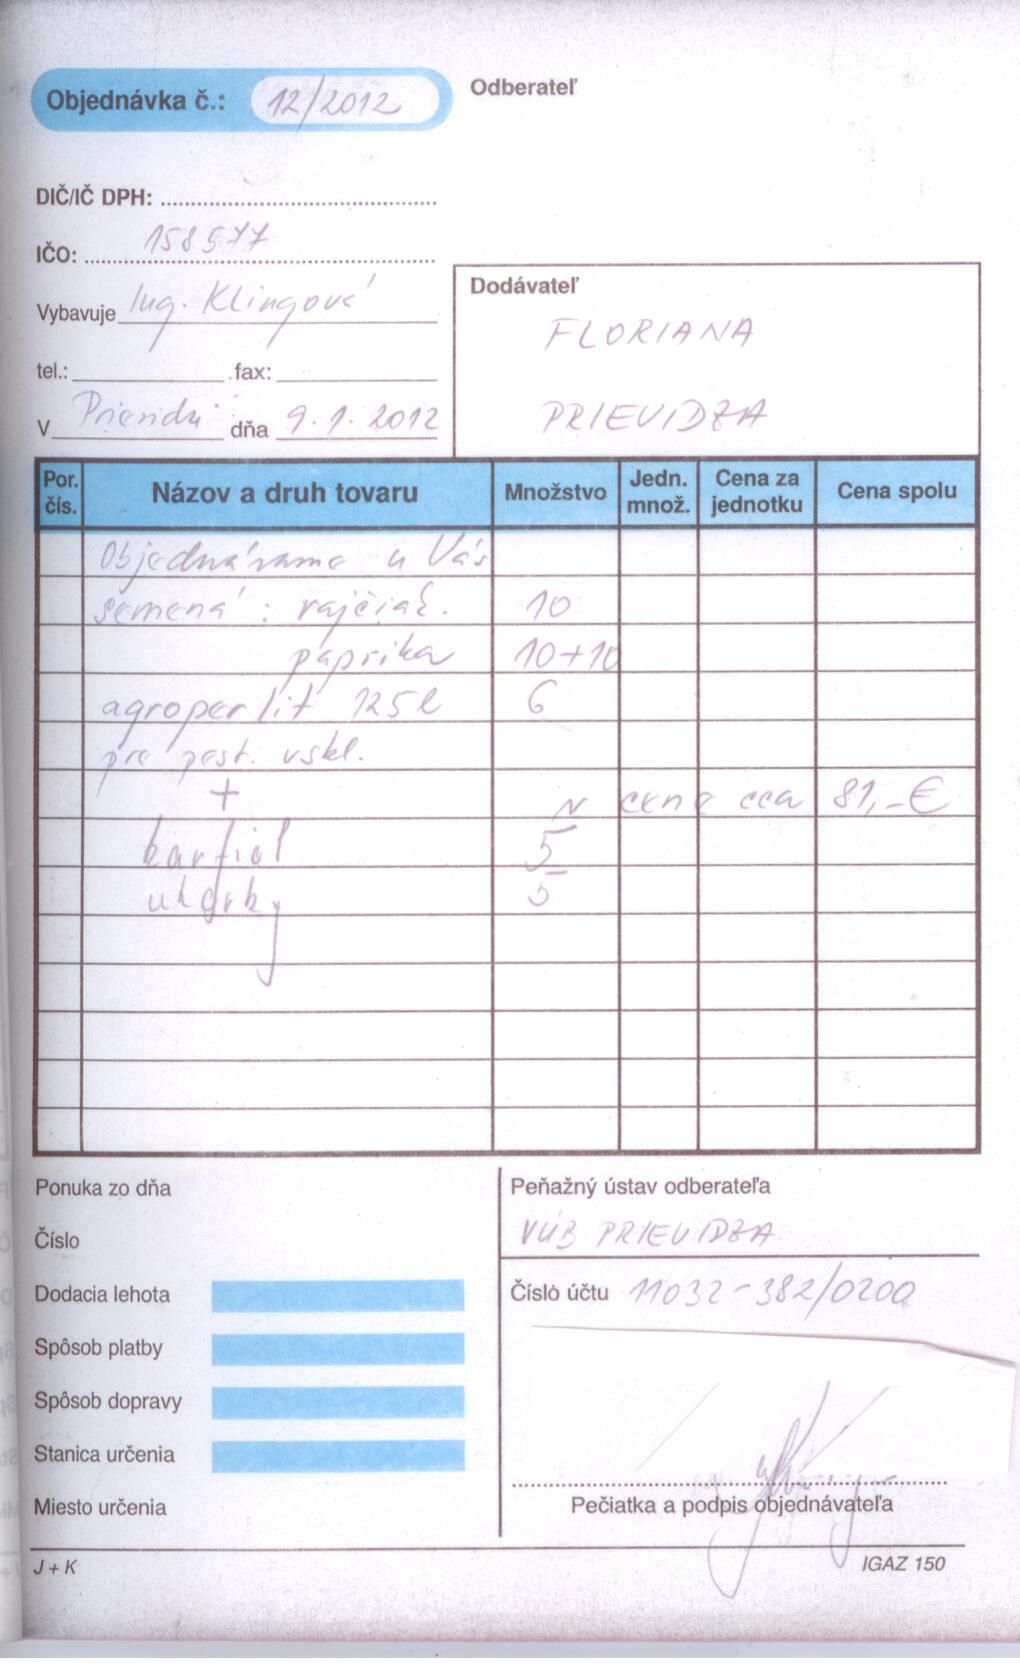 Objednávka č.: 12/2012
Odberateľ
DIČ/IČ DPH:
IČO: 158577
Vybavuje Ing. Klingová
tel.: fax:
V dňa 9.1.2012
Dodávateľ
FLORIANA
PRIEVIDZA
Por. čís. Názov a druh tovaru Množstvo Jedn. množ. Cena za jednotku Cena spolu
Objednávame u Vás
semená: rajčiak. 10
paprika 10+10
agroperlit 125l 6
pre pest. vskl.
+ cena cca 81,-€
karfiol 5
uhorky 5
Ponuka zo dňa
Číslo
Dodacia lehota
Spôsob platby
Spôsob dopravy
Stanica určenia
Miesto určenia
Peňažný ústav odberateľa
VÚB PRIEVIDZA
Číslo účtu 11032-382/0200
Pečiatka a podpis objednávateľa
J + K
IGAZ 150